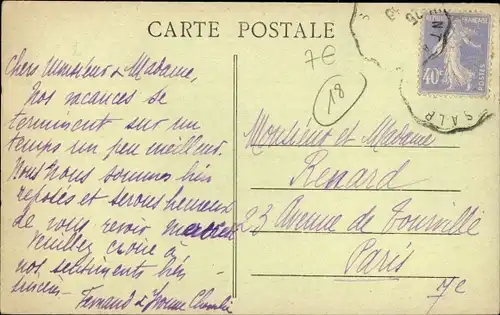 CARTE POSTALE
7€
18
REPUBLIQUE FRANCAISE
40c
POSTES
SALP
Chers Monsieur & Madame,
Nos vacances se
terminent sur un
temps un peu meilleur.
Nous nous sommes très
reposés et serons heureux
de vous revoir mercredi
Veuillez croire à
nos sentiments très
sincères -
Fernand & Yvonne
Monsieur et Madame
Renard
23 Avenue de Tourville
Paris
7e